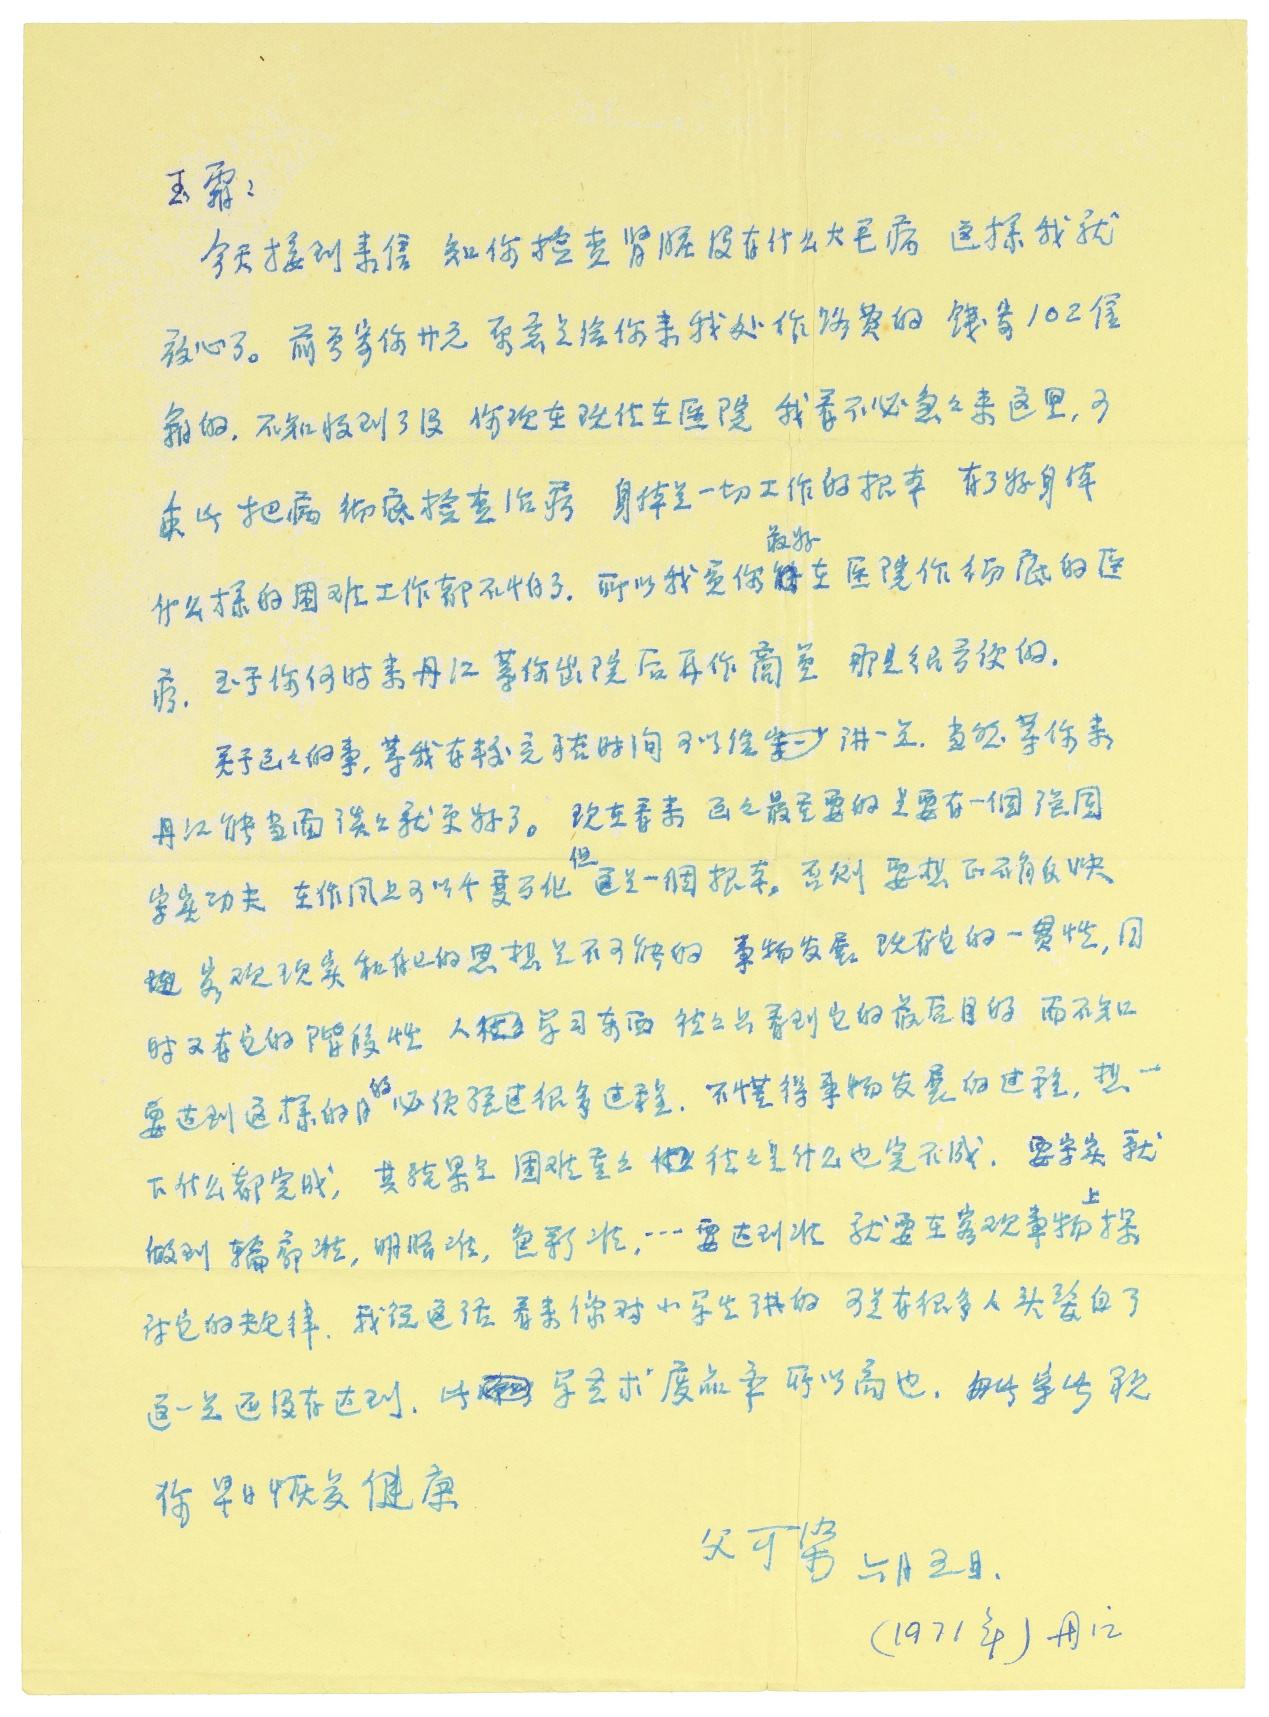 玉霜：
今天接到来信 知你检查肾脏没有什么大毛病 这样我就
放心了。前寄你廿元 原意是给你来我处作路费的 钱寄102信
箱的，不知收到了没 你现在既住在医院 我看不必急々来这里，可
在此把病彻底检查治疗 身体是一切工作的根本 有了好身体
什么样的困难工作都不怕了。所以我意你最好在医院作彻底的医
疗。至于你何时来丹江 等你出院后再作商量 那是很方便的。
关于画々的事，等我有较充裕时间可以给你讲一点。当然等你来
丹江能当面谈々就更好了。现在看来 画々最重要的是要有一個坚固
写实功夫 在作风上可以千变万化 但这是一個根本。否则 要想正确反映
客观现实和自己的思想是不可能的 事物发展既有它的一贯性，同
时又有它的阶段性 人们学习东西 往々只看到它的最后目的 而不知
要达到这样的目的必须经过很多过程。不懂得事物发展的过程，想一
下什么都完成，其结果是困难重々 往々是什么也完不成。要写实 就
做到轮廓准，明暗准，色彩准，…要达到准 就要在客观事物上探
讨它的规律。我说这话 看来像对小学生讲的 可是有很多人头发白了
这一点还没有达到。此学艺术废品率所以高也。专此 祝
你早日恢复健康
父可染 六月五日.
(1971年) 丹江